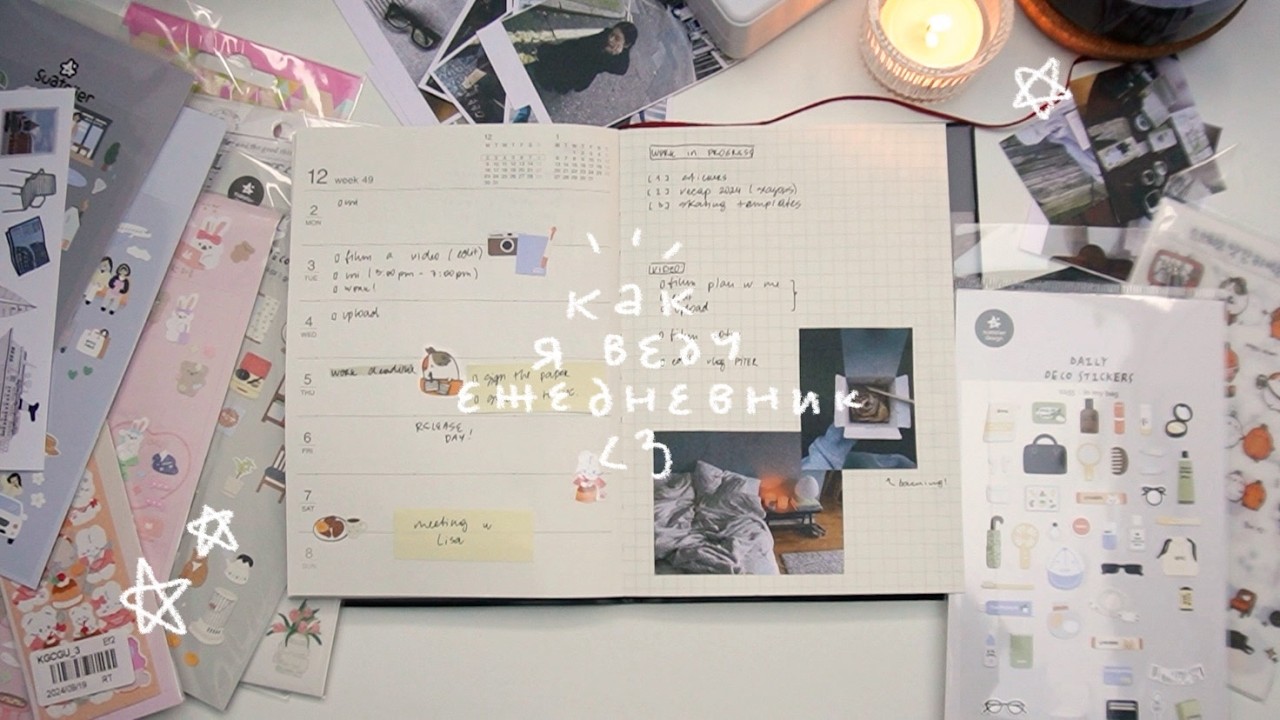 Suatelier
12 week 49
12
1
M T W T F S S
M T W T F S S
2
MON
uni
3
TUE
film a video (edit)
uni (5:00pm - 7:00pm)
work!
4
WED
upload
5
THU
work deadline
sign the paper
6
FRI
RELEASE
DAY!
7
SAT
meeting w
Lisa
8
SUN
WORK IN PROGRESS
(1)
(2) recap 2024
(3) skating templates
VIDEO
film plan w me
upload
film
vlog PITER
как
я веду
ежедневник
<3
Suatelier
design
DAILY
DECO STICKERS
KGCGU_3
Ef2
2024/09/19
RT